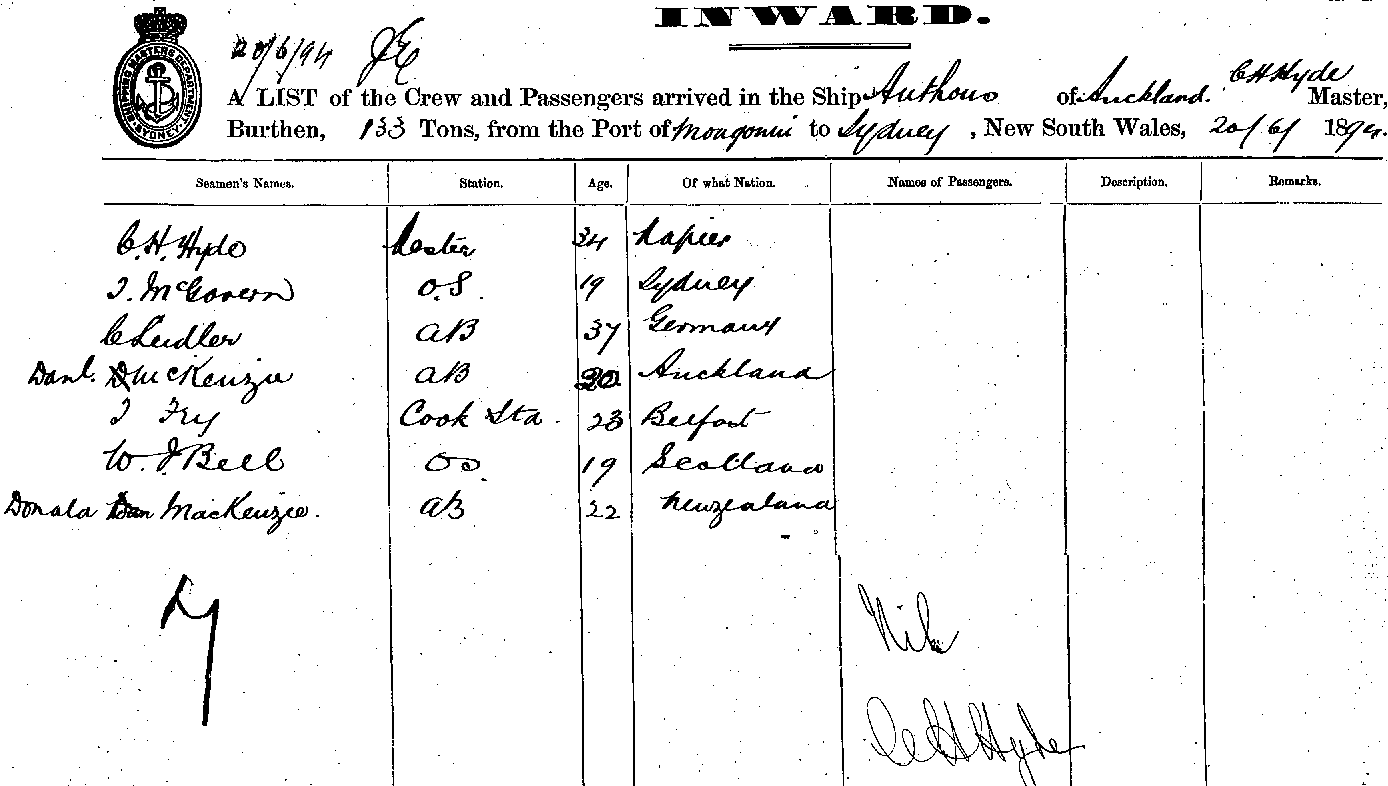 INWARD.
20/6/94 JE
SHIPPING MASTERS DEPARTMENT SYDNEY
C H Hyde
A LIST of the Crew and Passengers arrived in the Ship of Auckland. Master,
Burthen, 133 Tons, from the Port of Mongonui to Sydney, New South Wales, 20/6/ 1894.
Seamen's Names. Station. Age. Of what Nation. Names of Passengers. Description. Remarks.
C. H. Hyde Master 34 Napier
J. McGovern O.S. 19 Sydney
C Leidler AB 37 Germany
Danl. D McKenzie AB 20 Auckland
J Fry Cook Sta. 23 Belfast
W. J Bell OS. 19 Scotland
Donald Dan MacKenzie. AB 22 Newzealand
7
Nil
C H Hyde